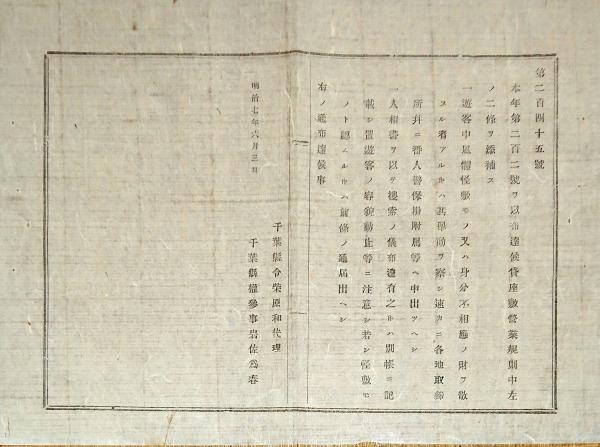 第二百四十五號
本年第二百二號ヲ以布達候貸座敷營業規則中左
ノ二條ヲ添補ス
一遊客中風體怪敷モノ又ハ身分不相應ノ財ヲ散
スル者アルハ其擧動ヲ察シ速カニ各地取締
所幷ニ番人警保掛附属等ヘ申出ツヘシ
一人相書ヲ以テ搜索ノ儀布達有之ルハ別帳ニ記
載シ置遊客ノ容貌動止等ニ注意シ若シ怪敷モ
ノト認ムルハ前條ノ通届出ヘシ
右ノ通布達候事
明治七年六月三日
千葉縣令柴原和代理
千葉縣權參事岩佐爲春